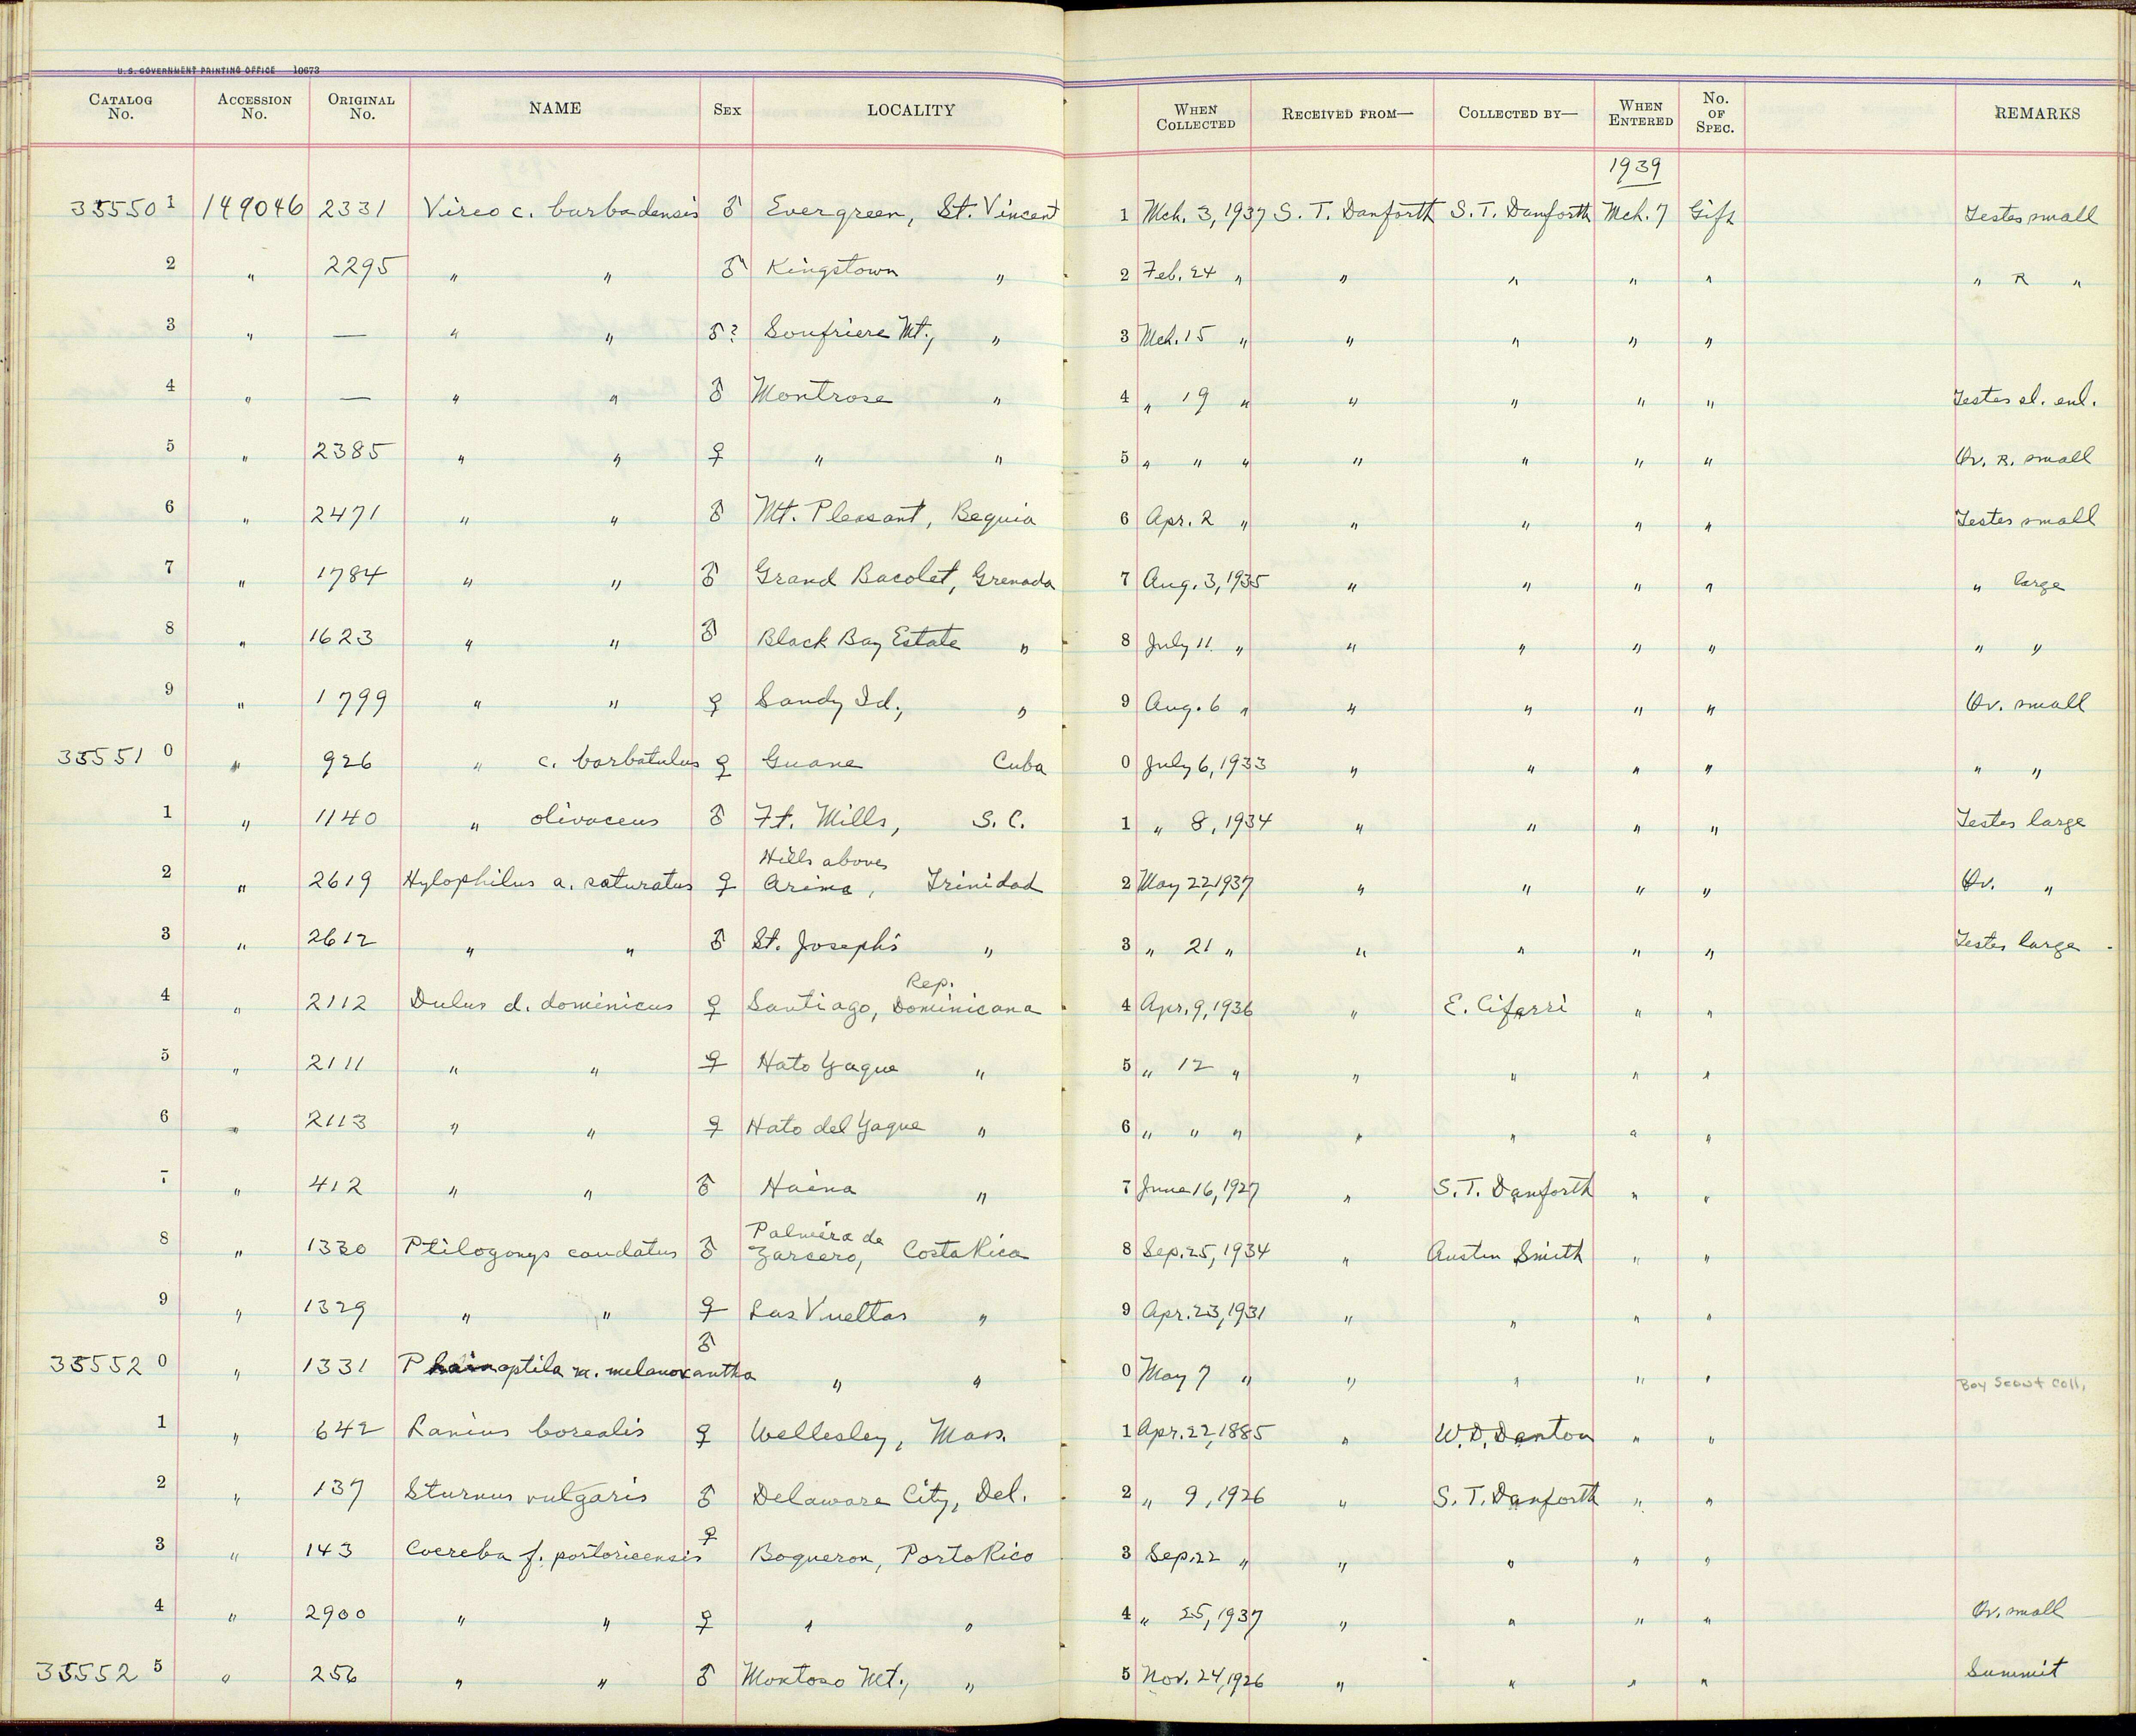 U.S. GOVERNMENT PRINTING OFFICE 10673
CATALOG No. ACCESSION No. ORIGINAL No. NAME SEX LOCALITY WHEN COLLECTED RECEIVED FROM— COLLECTED BY— WHEN ENTERED No. OF SPEC. REMARKS
1939
35550 1 149046 2331 Vireo c. barbadensis ♂ Evergreen, St. Vincent 1 Mch. 3, 1937 S. T. Danforth S. T. Danforth Mch. 7 Gift Testes small
2 " 2295 " " ♂ Kingstown " 2 Feb. 24 " " " " " " R "
3 " — " " ♂? Soufriere Mt., " 3 Mch. 15 " " " " "
4 " — " " ♂ Montrose " 4 " 19 " " " " " Testes sl. enl.
5 " 2385 " " ♀ " " 5 " " " " " " " Ov. R. small
6 " 2471 " " ♂ Mt. Pleasant, Bequia 6 Apr. 2 " " " " " Testes small
7 " 1784 " " ♂ Grand Bacolet, Grenada 7 Aug. 3, 1935 " " " " " large
8 " 1623 " " ♂ Black Bay Estate " 8 July 11 " " " " " " "
9 " 1799 " " ♀ Sandy Id., " 9 Aug. 6 " " " " " Ov. small
35551 0 " 926 " c. barbatulus ♀ Guane Cuba 0 July 6, 1933 " " " " " "
1 " 1140 " olivaceus ♂ Ft. Mills, S. C. 1 " 8, 1934 " " " " Testes large
2 " 2619 Hylophilus a. saturatus ♀ Hills above Arima, Trinidad 2 May 22, 1937 " " " " Ov. "
3 " 2612 " " ♂ St. Joseph's " 3 " 21 " " " " " Testes large
4 " 2112 Dulus d. dominicus ♀ Santiago, Rep. Dominicana 4 Apr. 9, 1936 " E. Ciferri " "
5 " 2111 " " ♀ Hato Yaque " 5 " 12 " " " " "
6 " 2113 " " ♀ Hato del Yaque " 6 " " " " " " "
7 " 412 " " ♂ Haina " 7 June 16, 1927 " S. T. Danforth " "
8 " 1330 Ptilogonys caudatus ♂ Palmira de Zarcero, Costa Rica 8 Sep. 25, 1934 " Austin Smith " "
9 " 1329 " " ♀ Las Vueltas " 9 Apr. 23, 1931 " " " "
35552 0 " 1331 Phainoptila m. melanoxantha ♂ " " 0 May 7 " " " " " Boy Scout Coll.
1 " 642 Lanius borealis ♀ Wellesley, Mass. 1 Apr. 22, 1885 " W. D. Denton " "
2 " 137 Sturnus vulgaris ♂ Delaware City, Del. 2 " 9, 1926 " S. T. Danforth " "
3 " 143 Coereba f. portoricensis ♀ Boqueron, Porto Rico 3 Sep. 22 " " " " "
4 " 2900 " " ♀ " " 4 " 25, 1937 " " " " Ov. small
35552 5 " 256 " " ♂ Montoso Mt., " 5 Nov. 24, 1926 " " " " Summit